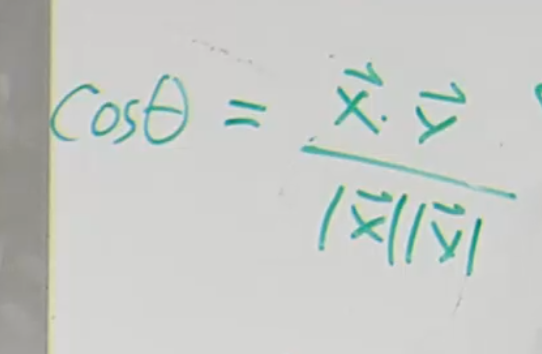 cosθ = x⃗·y⃗ / |x⃗||y⃗|